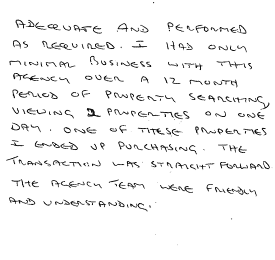 ADEQUATE AND PERFORMED
AS REQUIRED. I HAD ONLY
MINIMAL BUSINESS WITH THIS
AGENCY OVER A 12 MONTH
PERIOD OF PROPERTY SEARCHING,
VIEWING 2 PROPERTIES ON ONE
DAY. ONE OF THESE PROPERTIES
I ENDED UP PURCHASING. THE
TRANSACTION WAS STRAIGHT FORWARD.
THE AGENCY TEAM WERE FRIENDLY
AND UNDERSTANDING.